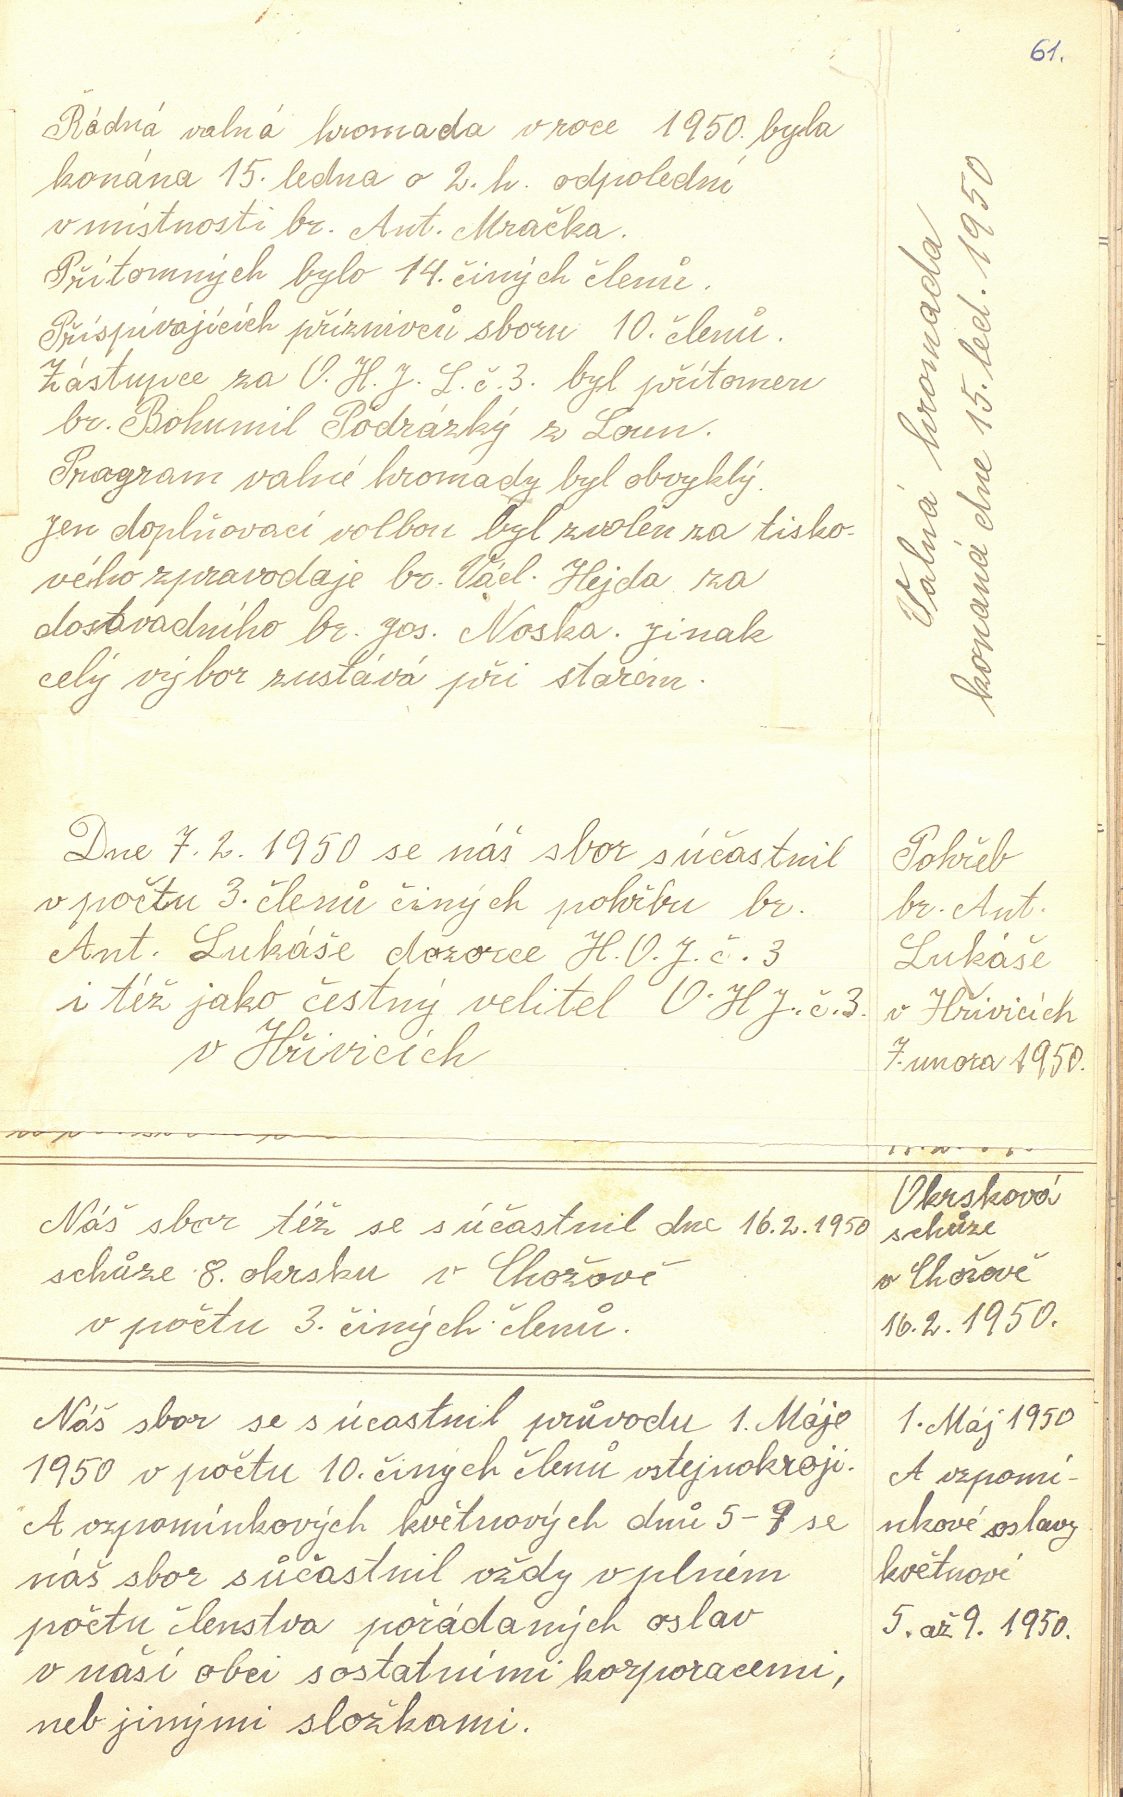 61.
Řádná valná hromada v roce 1950. byla
konána 15. ledna o 2. h. odpolední
v místnosti br. Ant. Mračka.
Přítomných bylo 14. činých členů.
Přispívajících příznivců sboru 10. členů.
Zástupce za O. H. J. L. č. 3. byl přítomen
br. Bohumil Podrázký z Loun.
Program valné hromady byl obvyklý.
jen doplňovací volbou byl zvolen za tisko-
vého zpravodaje br. Václ. Hejda za
dosavadního br. Jos. Noska. jinak
celý výbor zustává při starém.
Valná hromada
konaná dne 15. led. 1950
Dne 7. 2. 1950 se náš sbor súčastnil
v počtu 3. členů činých pohřbu br.
Ant. Lukáše dozorce H. O. J. č. 3
i též jako čestný velitel O. H J. č. 3.
v Hřivicích
Pohřeb
br. Ant.
Lukáše
v Hřivicích
7. unora 1950.
Náš sbor též se súčastnil dne 16. 2. 1950
schůze 8. okrsku v Chožově
v počtu 3. činých členů.
Okrsková
schůze
v Chožově
16. 2. 1950.
Náš sbor se súcastnil průvodu 1. Máje
1950 v počtu 10. činých členů vstejnokroji.
A vzpomínkových květnových dnů 5-9 se
náš sbor sůčastnil vždy v plném
počtu členstva pořádaných oslav
v naší obci s ostatními korporacemi,
neb jinými složkami.
1. Máj 1950
A vzpomí-
nkové oslavy
květnové
5. až 9. 1950.